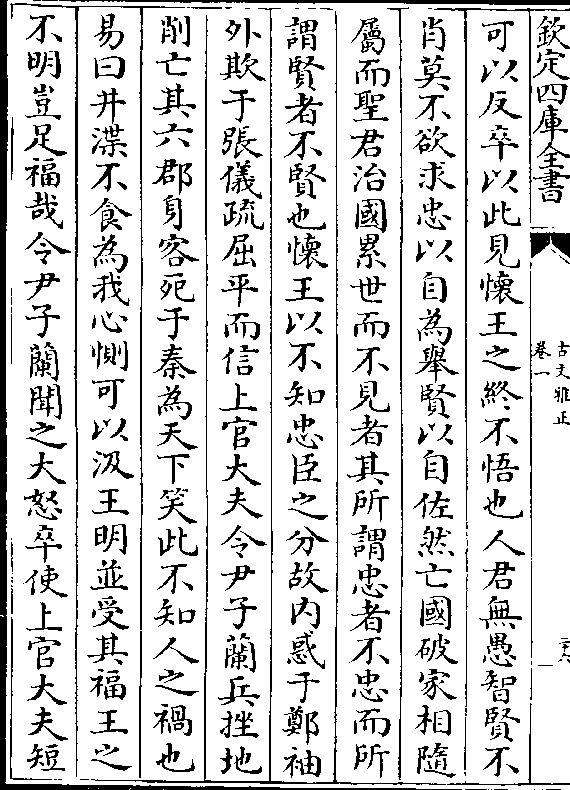 欽定四庫全書
古文雅正
卷一
二十六
可以反卒以此見懷王之終不悟也人君無愚智賢不
肖莫不欲求忠以自為舉賢以自佐然亡國破家相隨
屬而聖君治國累世而不見者其所謂忠者不忠而所
謂賢者不賢也懷王以不知忠臣之分故内惑于鄭袖
外欺于張儀疏屈平而信上官大夫令尹子蘭兵挫地
削亡其六郡身客死于秦為天下笑此不知人之禍也
易曰井渫不食為我心惻可以汲王明並受其福王之
不明豈足福哉令尹子蘭聞之大怒卒使上官大夫短